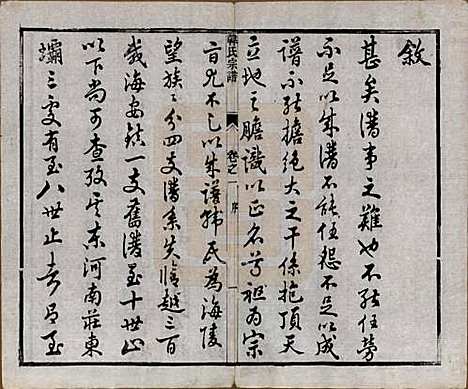 敘
甚矣譜事之難也不能任勞
不足以成譜不能任怨不足以成
譜不能擔絕大之干係抱頂天
立地之膽識以正名尊祖为宗
旨尤不足以成譜韩氏為海陵
韓氏宗譜
卷之一
序
一
望族之分四支譜系失修越三百
載海安鎮一支舊譜至十世止
以下尚可查考其东河南莊東
壩三支有至八世止者有至